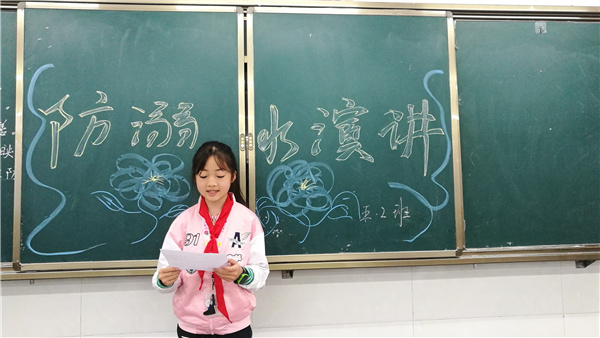 防溺水演讲
五.2班
91
A